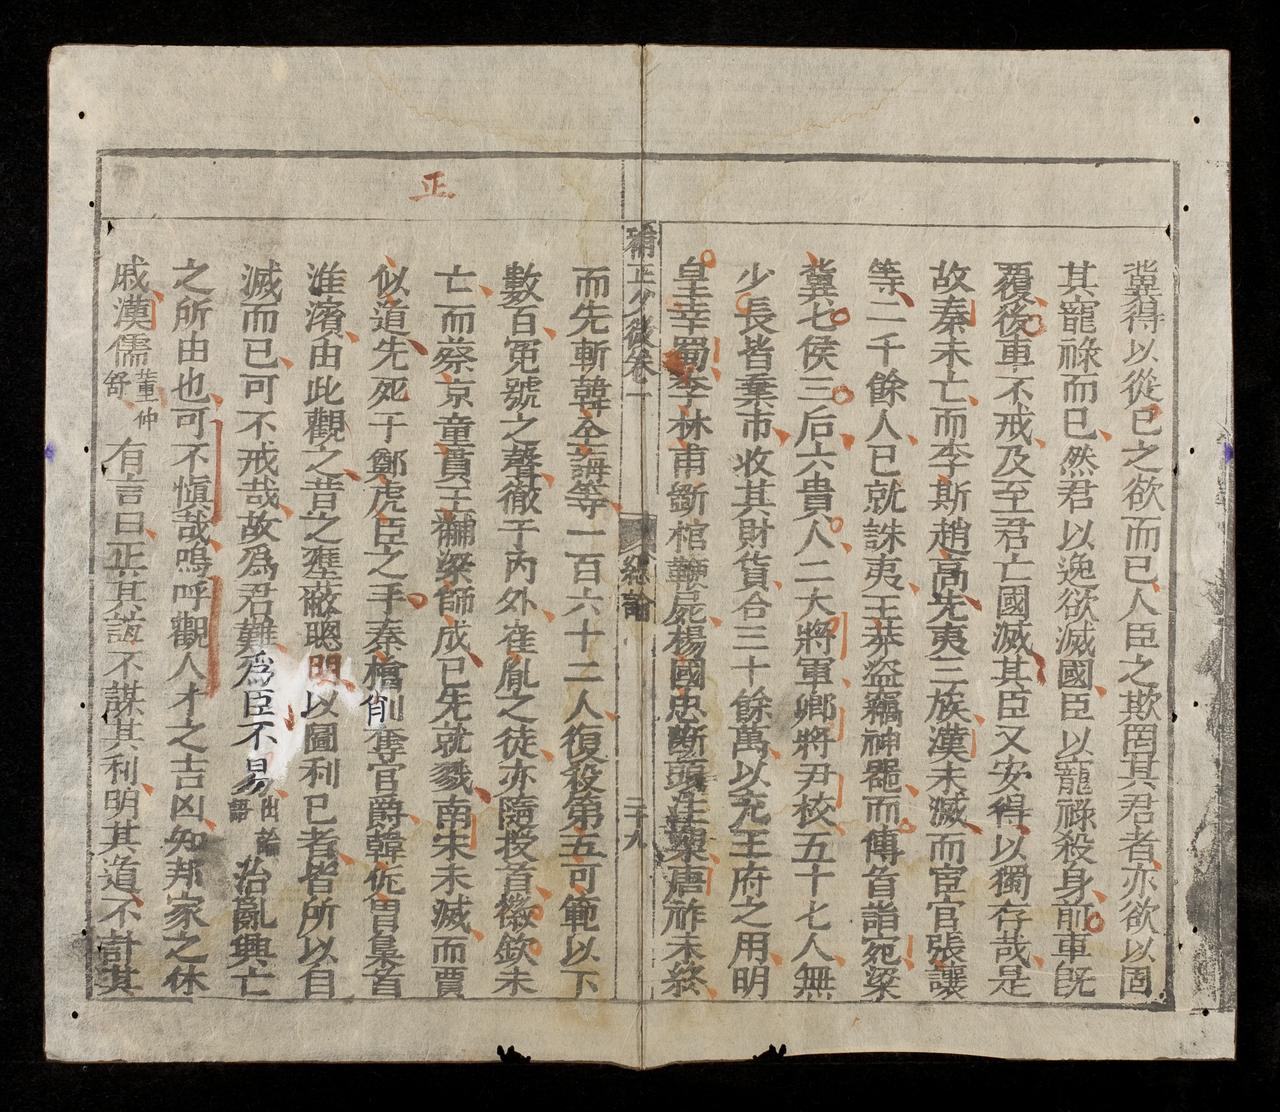 冀得以從己之欲而已人臣之欺罔其君者亦欲以固
其寵祿而已然君以逸欲滅國臣以寵祿殺身前車旣
覆後車不戒及至君亡國滅其臣又安得以獨存哉是
故秦未亡而李斯趙高先夷三族漢未滅而宦官張讓
等二千餘人已就誅夷王莽盜竊神器而傳首詣宛梁
冀七侯三后六貴人二大將軍卿將尹校五十七人無
少長皆棄市收其財貨合三十餘萬以充王府之用明
皇幸蜀李林甫斲棺鞭屍楊國忠斷頭注槊唐祚未終
補正少微卷一 總論 二十八
而先斬韓全誨等一百六十二人復殺第五可範以下
數百冤號之聲徹于內外崔胤之徒亦隨授首徽欽未
亡而蔡京童貫王黼梁師成已先就戮南宋未滅而賈
似道先死于鄭虎臣之手秦檜削奪官爵韓侂冑梟首
淮濱由此觀之昔之壅蔽聰明以圖利己者皆所以自
滅而已可不戒哉故爲君難爲臣不易出論語治亂興亡
之所由也可不愼哉嗚呼觀人才之吉凶知邦家之休
戚漢儒董仲舒有言曰正其誼不謀其利明其道不計其
正